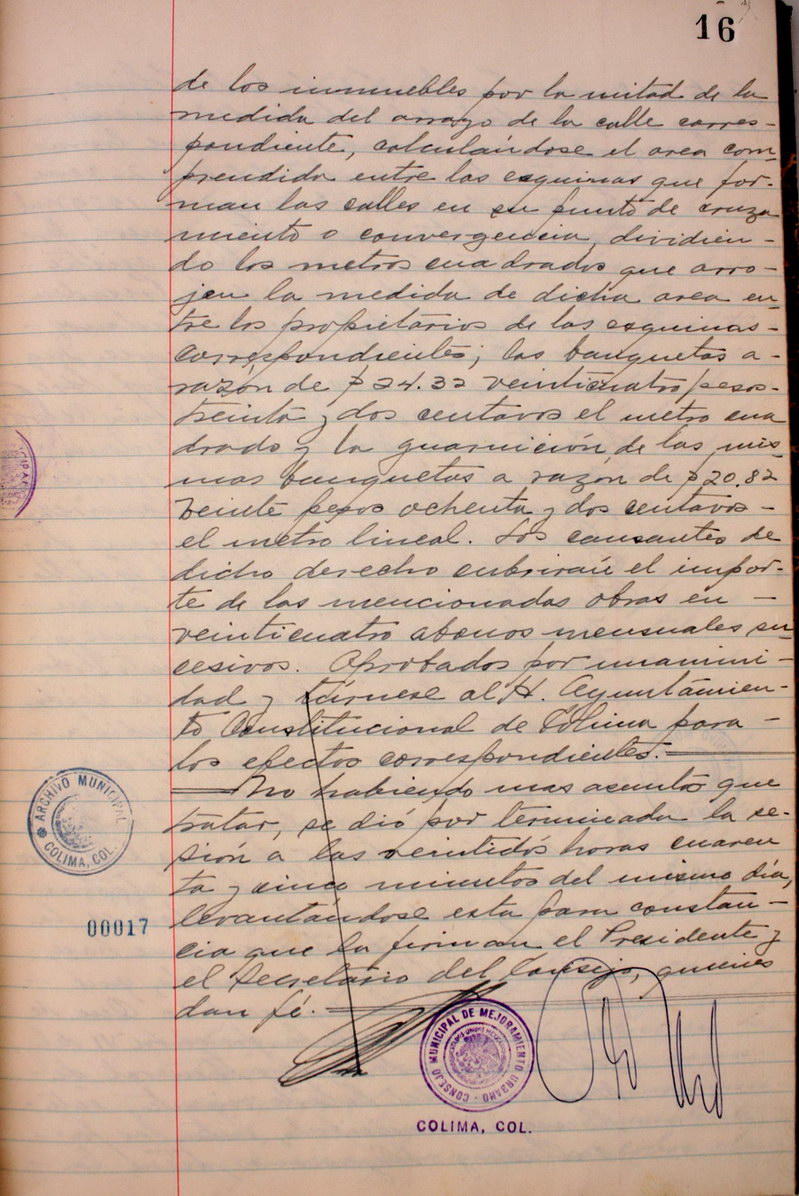 16
de los inmuebles por la mitad de la
medida del arroyo de la calle corres-
pondiente, calculándose el area com-
prendida entre las esquinas que for-
man las calles en su punto de cruza
miento o convergencia, dividien-
do los metros cuadrados que arro-
jen la medida de dicha area en-
tre los propietarios de las esquinas-
correspondientes; las banquetas a-
razón de $24.32 veinticuatro pesos-
treinta y dos centavos el metro cua
drado y la guarnición de las mis-
mas banquetas a razón de $20.82
veinte pesos ochenta y dos centavos-
el metro lineal. Los causantes de
dicho derecho cubrirán el impor-
te de las mencionadas obras en -
veinticuatro abonos mensuales su-
cesivos. Aprobados por unanimi-
dad y túrnese al H. Ayuntamien-
to Constitucional de Colima para -
los efectos correspondientes.
No habiendo mas asuntos que
tratar, se dió por terminada la se-
sión a las veintidós horas cuaren
ta y cinco minutos del mismo día,
levantándose esta para constan-
cia que la firman el Presidente y
el Secretario del Consejo, quienes
dan fé.
ARCHIVO MUNICIPAL
COLIMA, COL.
00017
CONSEJO MUNICIPAL DE MEJORAMIENTO URBANO
COLIMA, COL.